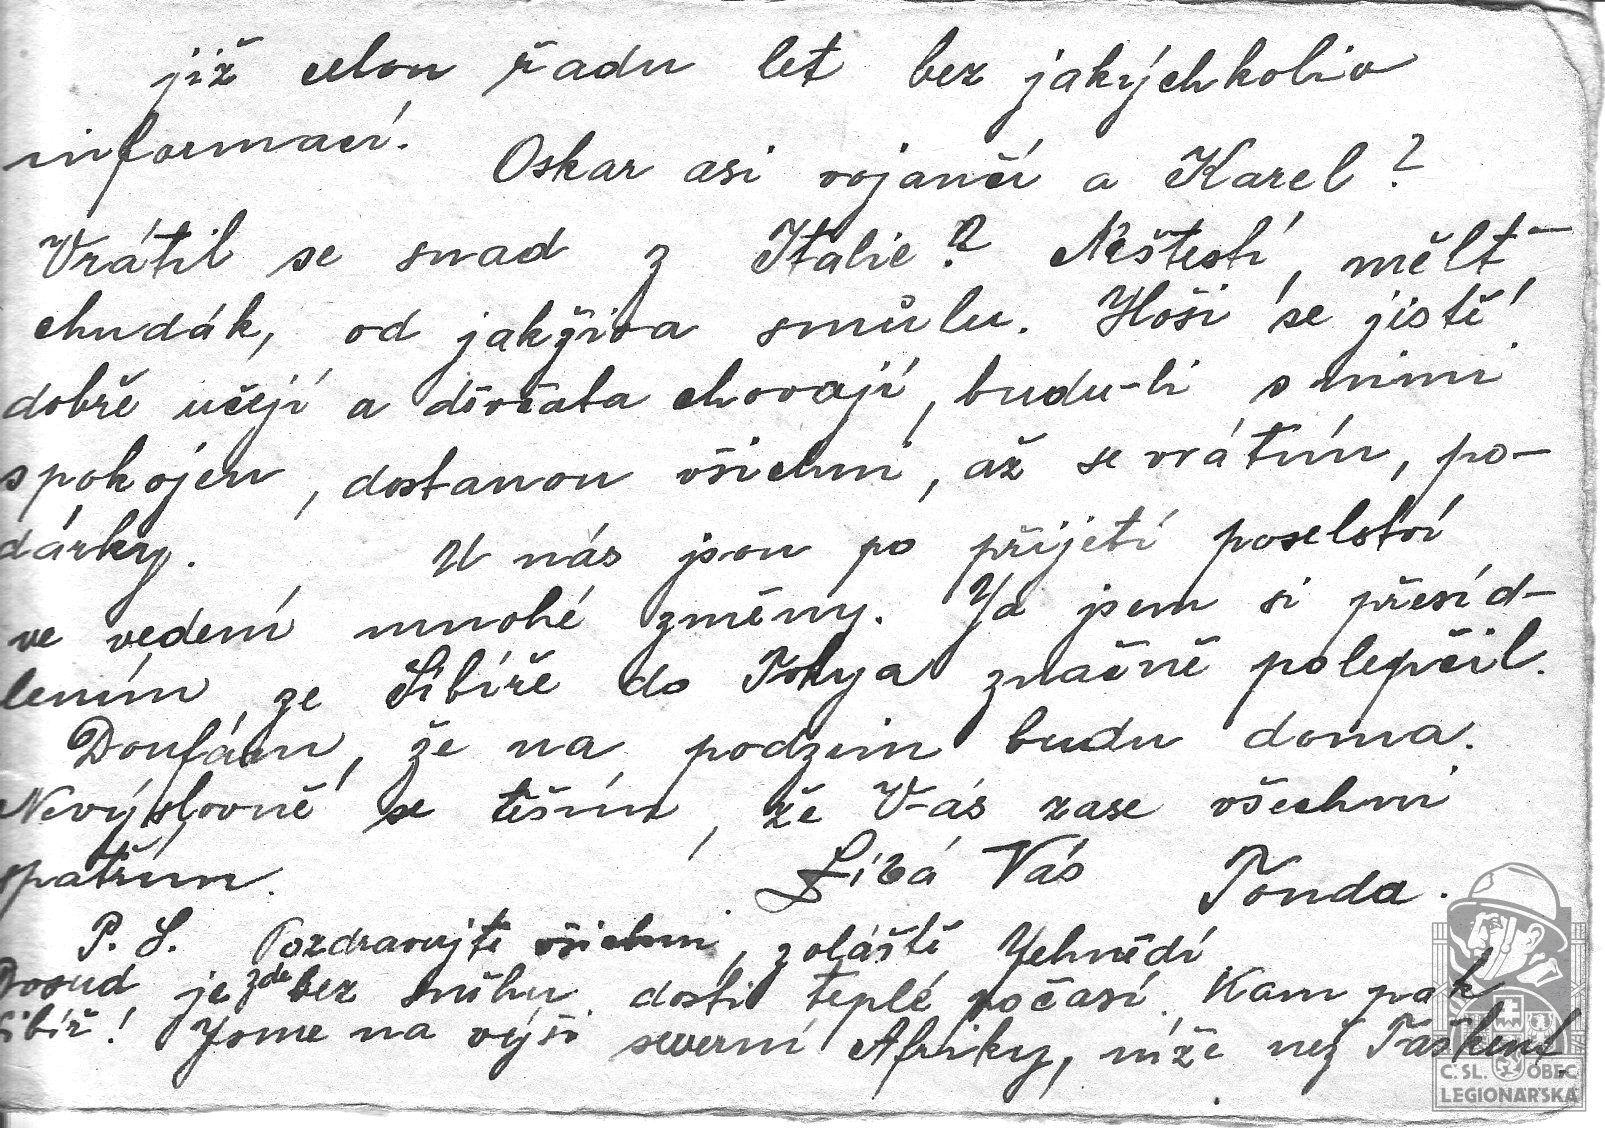 již celou řadu let bez jakýchkoliv
informací. Oskar asi vojančí a Karel?
Vrátil se snad z Italie? Neštestí, mělť
chudák, od jakživa smůlu. Hoši se jistě
dobře učejí a děvčata chovají, budu-li s nimi
spokojen, dostanou všichni, až se vrátím, po-
dárky. U nás jsou po přijetí poselství
ve vedení mnohé změny. Já jsem si přesíd-
lením ze Sibíře do Tokya značně polepčil.
Doufám, že na podzim budu doma.
Nevýslovně se těším, že Vás zase všechni
spatřím. Líbá Vás Tonda.
P. S. Pozdravujte všichni, zoláště
Dosud je zde bez sněhu dosti teplé počasí. Kam pak
Sibíř! Jsme na výši severní Afriky, níže než Taškent.
Č. SL. OBEC
LEGIONÁŘSKÁ